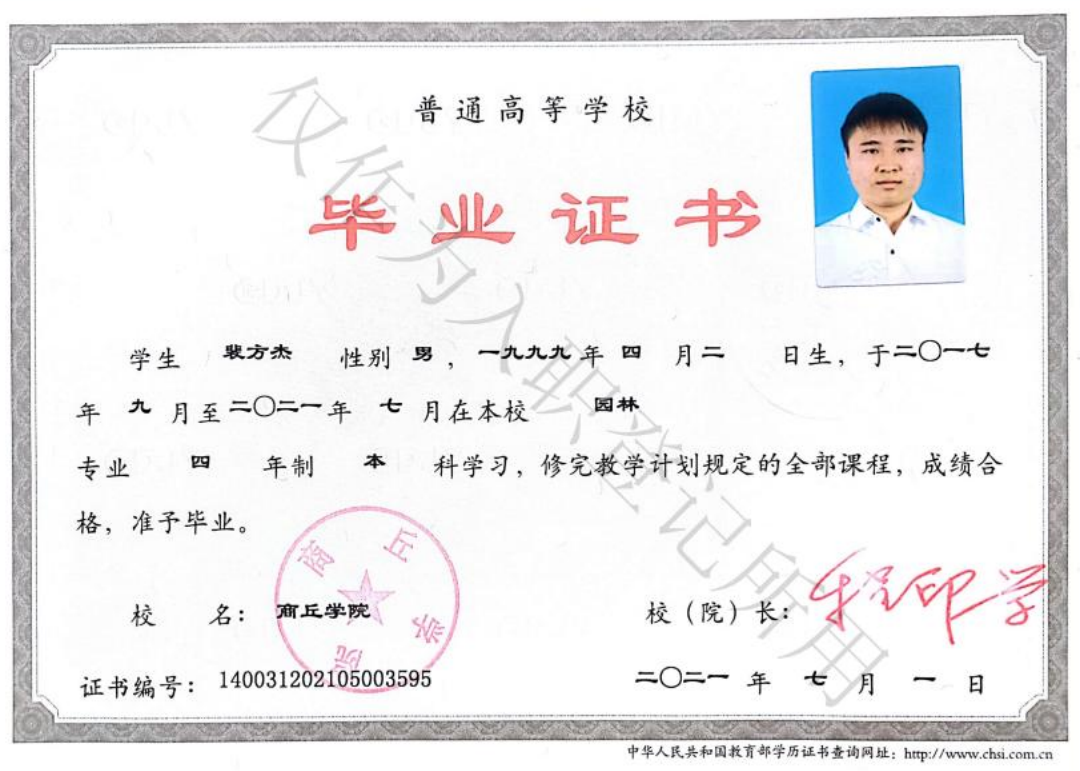 普通高等学校
毕业证书
学生 裴方杰 性别 男，一九九九年 四 月二 日生，于二〇一七
年 九 月至二〇二一年 七 月在本校 园林
专业 四 年制 本 科学习，修完教学计划规定的全部课程，成绩合
格，准予毕业。
商丘学院
校 名：商丘学院 校（院）长：
证书编号：140031202105003595 二〇二一 年 七 月 一 日
中华人民共和国教育部学历证书查询网址：http://www.chsi.com.cn
仅作为入职登记所用